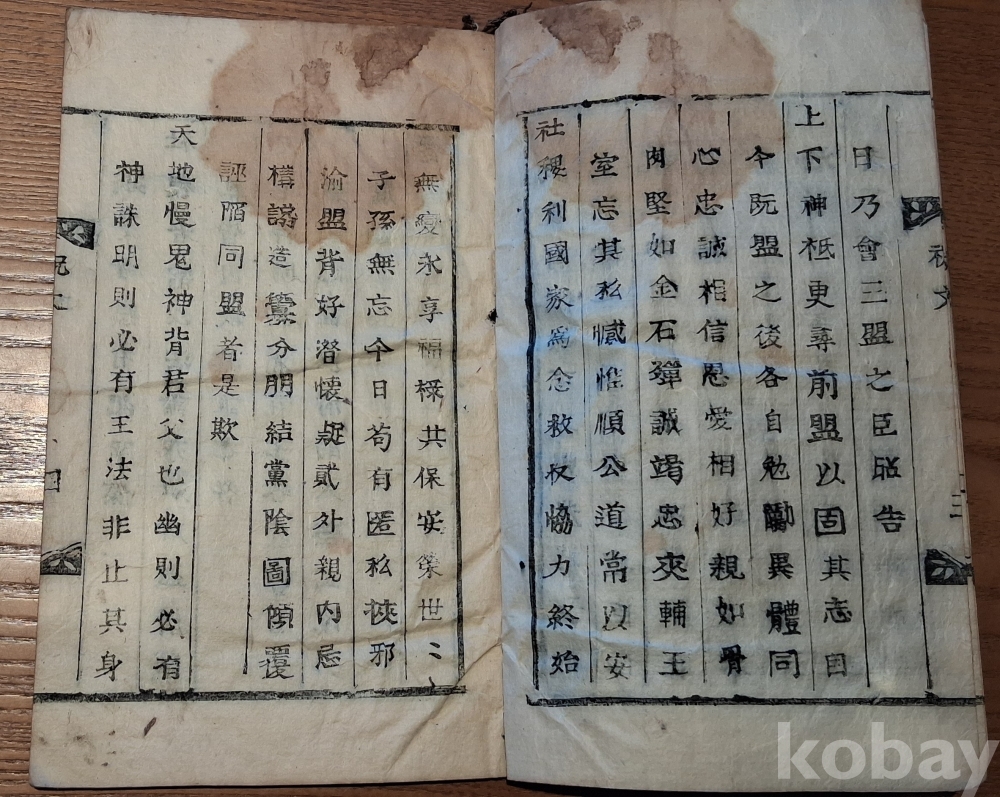 日乃會三盟之臣昭告
上下神祗更尋前盟以固其志自
今旣盟之後各自勉勵異體同
心忠誠相信恩愛相好親如骨
肉堅如金石殫誠竭忠夾輔王
室忘其私憾惟順公道常以安
社稷利國家爲念救扶恊力終始
無變永享福祿共保安榮世〻
子孫無忘今日苟有匿私挾邪
渝盟背好潛懷疑貳外親內忌
構讒造釁分朋結黨陰圖傾覆
誣陷同盟者是欺
天地慢鬼神背君父也幽則必有
神誅明則必有王法非止其身
文
三
四
kobay